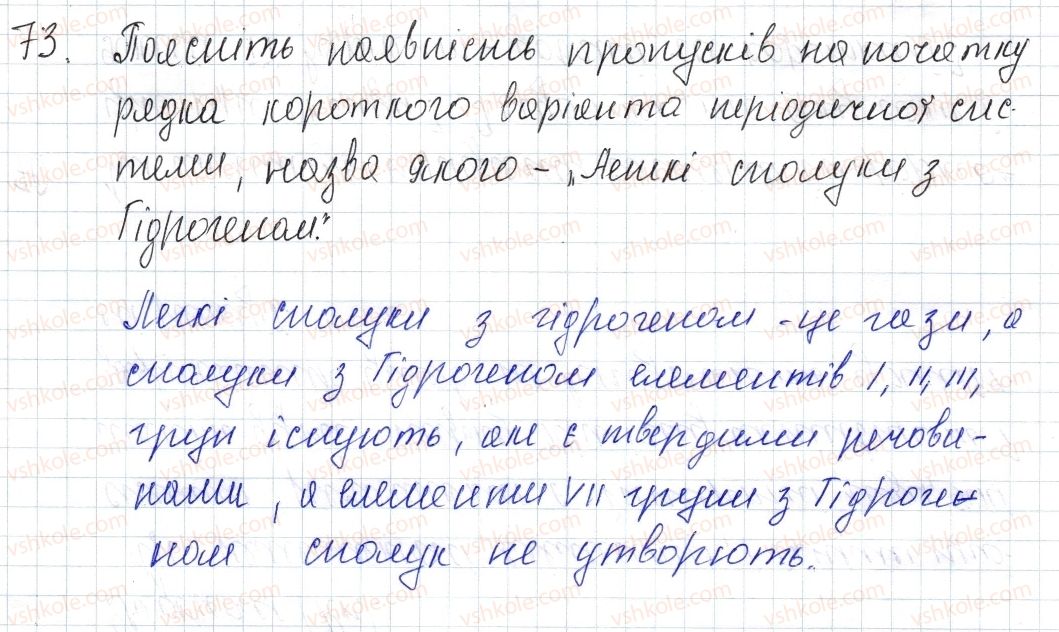 73. Поясніть наявність пропусків на початку
рядка короткого варіанта періодичної сис-
теми, назва якого - „Леткі сполуки з
Гідрогеном."
Легкі сполуки з гідрогеном - це гази, а
сполуки з Гідрогеном елементів I, II, III,
груп існують, але є твердими речови-
нами, а елементи VII групи з Гідроге-
ном сполук не утворюють.